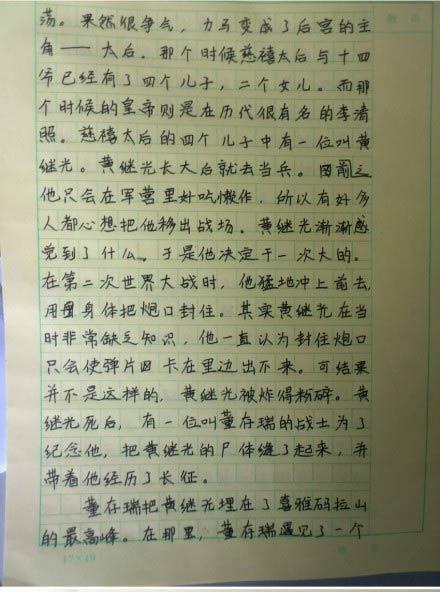 荡。果然很争气，力马变成了后宫的主
角——太后。那个时候慈禧太后与十四
爷已经有了四个儿子，二个女儿。而那
个时候的皇帝则是在历代很有名的李清
照。慈禧太后的四个儿子中有一位叫黄
继光。黄继光长大后就去当兵。因前之
他只会在军营里好吃懒作，所以有好多
人都心想把他移出战场。黄继光渐渐感
觉到了什么，于是他决定干一次大的。
在第二次世界大战时，他猛地冲上前去，
用身体把炮口封住。其实黄继光在当
时非常缺乏知识，他一直认为封住炮口
只会使弹片卡在里边出不来。可结果
并不是这样的，黄继光被炸得粉碎。黄
继光死后，有一位叫董存瑞的战士为了
纪念他，把黄继光的尸体缝了起来，并
带着他经历了长征。
董存瑞把黄继光埋在了喜雅码拉山
的最高峰。在那里，董存瑞遇见了一个